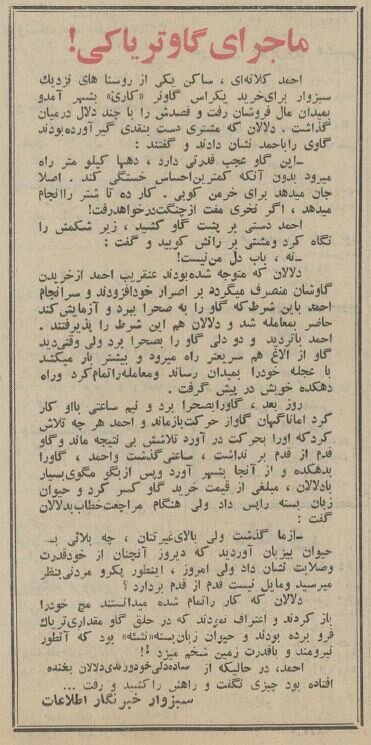 ماجرای گاو تریاکی!
احمد کلانه‌ای، ساکن یکی از روستا های نزدیك
سبزوار برای خرید یکراس گاونر «کاری» بشهر آمدو
بمیدان مال فروشان رفت و قصدش را با چند دلال درمیان
گذاشت. دلالان که مشتری دست بنقدی گیرآورده‌بودند
گاوی راباحمد نشان دادند و گفتند:
ـ این گاو عجب قدرتی دارد، دهها کیلو متر راه
میرود بدون آنکه کمترین‌احساس خستگی کند. اصلا
جان میدهد برای خرمن کوبی. کار ده تا شتر راانجام
میدهد، اگر نخری مفت ازچنگت‌درخواهدرفت!
احمد دستی بر پشت گاو کشید، زیر شکمش را
نگاه کرد ومشتی بر رانش کوبید و گفت:
ـ نه، باب دل من‌نیست!
دلالان که متوجه شده‌بودند عنقریب احمد ازخریدن
گاوشان منصرف میگردد بر اصرار خودافزودند و سرانجام
احمد باین شرط‌که گاو را به صحرا ببرد و آزمایش‌کند
حاضر بمعامله شد و دلالان هم این شرط را پذیرفتند.
احمد باتردید و دو دلی گاو را بصحرا برد ولی وقتی‌دید
گاو از الاغ هم سریعتر راه میرود و بیشتر بار میکشد
با عجله خودرا بمیدان رساند ومعامله‌راتمام‌کرد وراه
دهکده خویش در پیش گرفت.
روز بعد، گاورابصحرا برد و نیم ساعتی بااو کار
کرد اماناگهان گاواز حرکت‌بازماند و احمد هر چه تلاش
کردکه اورا بحرکت در آورد تلاشش بی نتیجه ماند وگاو
قدم از قدم بر نداشت، ساعتی‌گذشت واحمد، گاورا
بدهکده و از آنجا بشهر آورد وپس ازبگو مگوی‌بسیار
بادلالان، مبلغی از قیمت خرید گاو کسر کرد و حیوان
زبان بسته راپس داد ولی هنگام مراجعت‌خطاب‌بدلالان
گفت:
ـ ازما گذشت ولی بالای‌غیرتتان، چه بلائی بـ
حیوان بیزبان آوردید که دیروز آنچنان از خودقدرت
وصلابت نشان داد ولی امروز، اینطور پکرو مردنی‌بنظر
میرسید ومایل نیست قدم از قدم بردارد؟
دلالان که کار راتمام شده میدانستند مچ خودرا
باز کردند و اعتراف نمودند که در حلق گاو مقداری‌تریاك
فرو برده بودند و حیوان زبان‌بسته «نشئه» بود که آنطور
نیرومند و باقدرت زمین شخم میزد!!
احمد، در حالیکه از ساده‌دلی‌خودورندی‌دلالان بخنده
افتاده بود چیزی نگفت و راهش راکشید و رفت ...
سبزوار خبرنگار اطلاعات